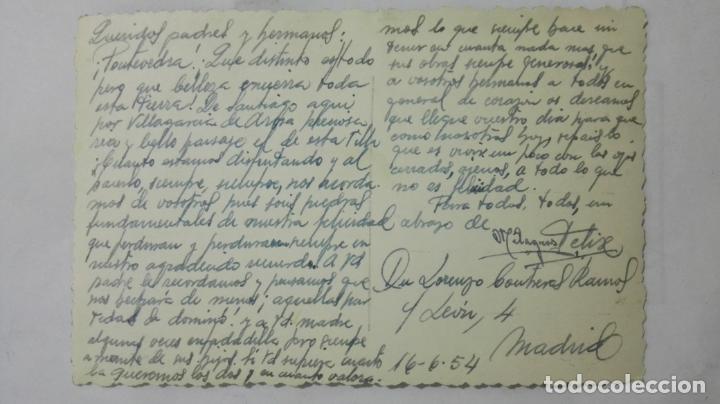 Queridos padres y hermanos:
¡Pontevedra! Que distinto es todo
pero que belleza encierra toda
esta tierra! De Santiago aquí
por Villagarcia de Arosa preciosa
rea y bello paisaje el de esta
¡Cuanto estamos disfrutando y al
siempre, siempre, nos acorda
mos de vosotros pues sois piedras
fundamentales de nuestra felicidad
que perduran y perduraran siempre en
nuestro agradecido recuerdo. A Vd
padre le recordamos y pensamos que
nos echará de menos; aquellas par
tidas de dominó! y a Vd. madre
algunas veces enfadadilla pero siempre
amante de sus hijos. Si Vd supiera cuanto
la queremos los dos y en cuanto valora-
mos lo que siempre hace sin
tener en cuenta nada mas que
sus obras siempre generosas; y
a vosotros hermanos a todos en
general de corazon os deseamos
que llegue vuestro dia para que
como nosotros hoy, sepais lo
que es vivir un poco con los ojos
cerrados, ajenos, a todo lo que
no es felicidad.
Para todos, todos, un
abrazo de
Milagros Felix
Dn Lorenzo Contreras Ramos
c/ León, 4
Madrid
16-6-54
todocoleccion.net